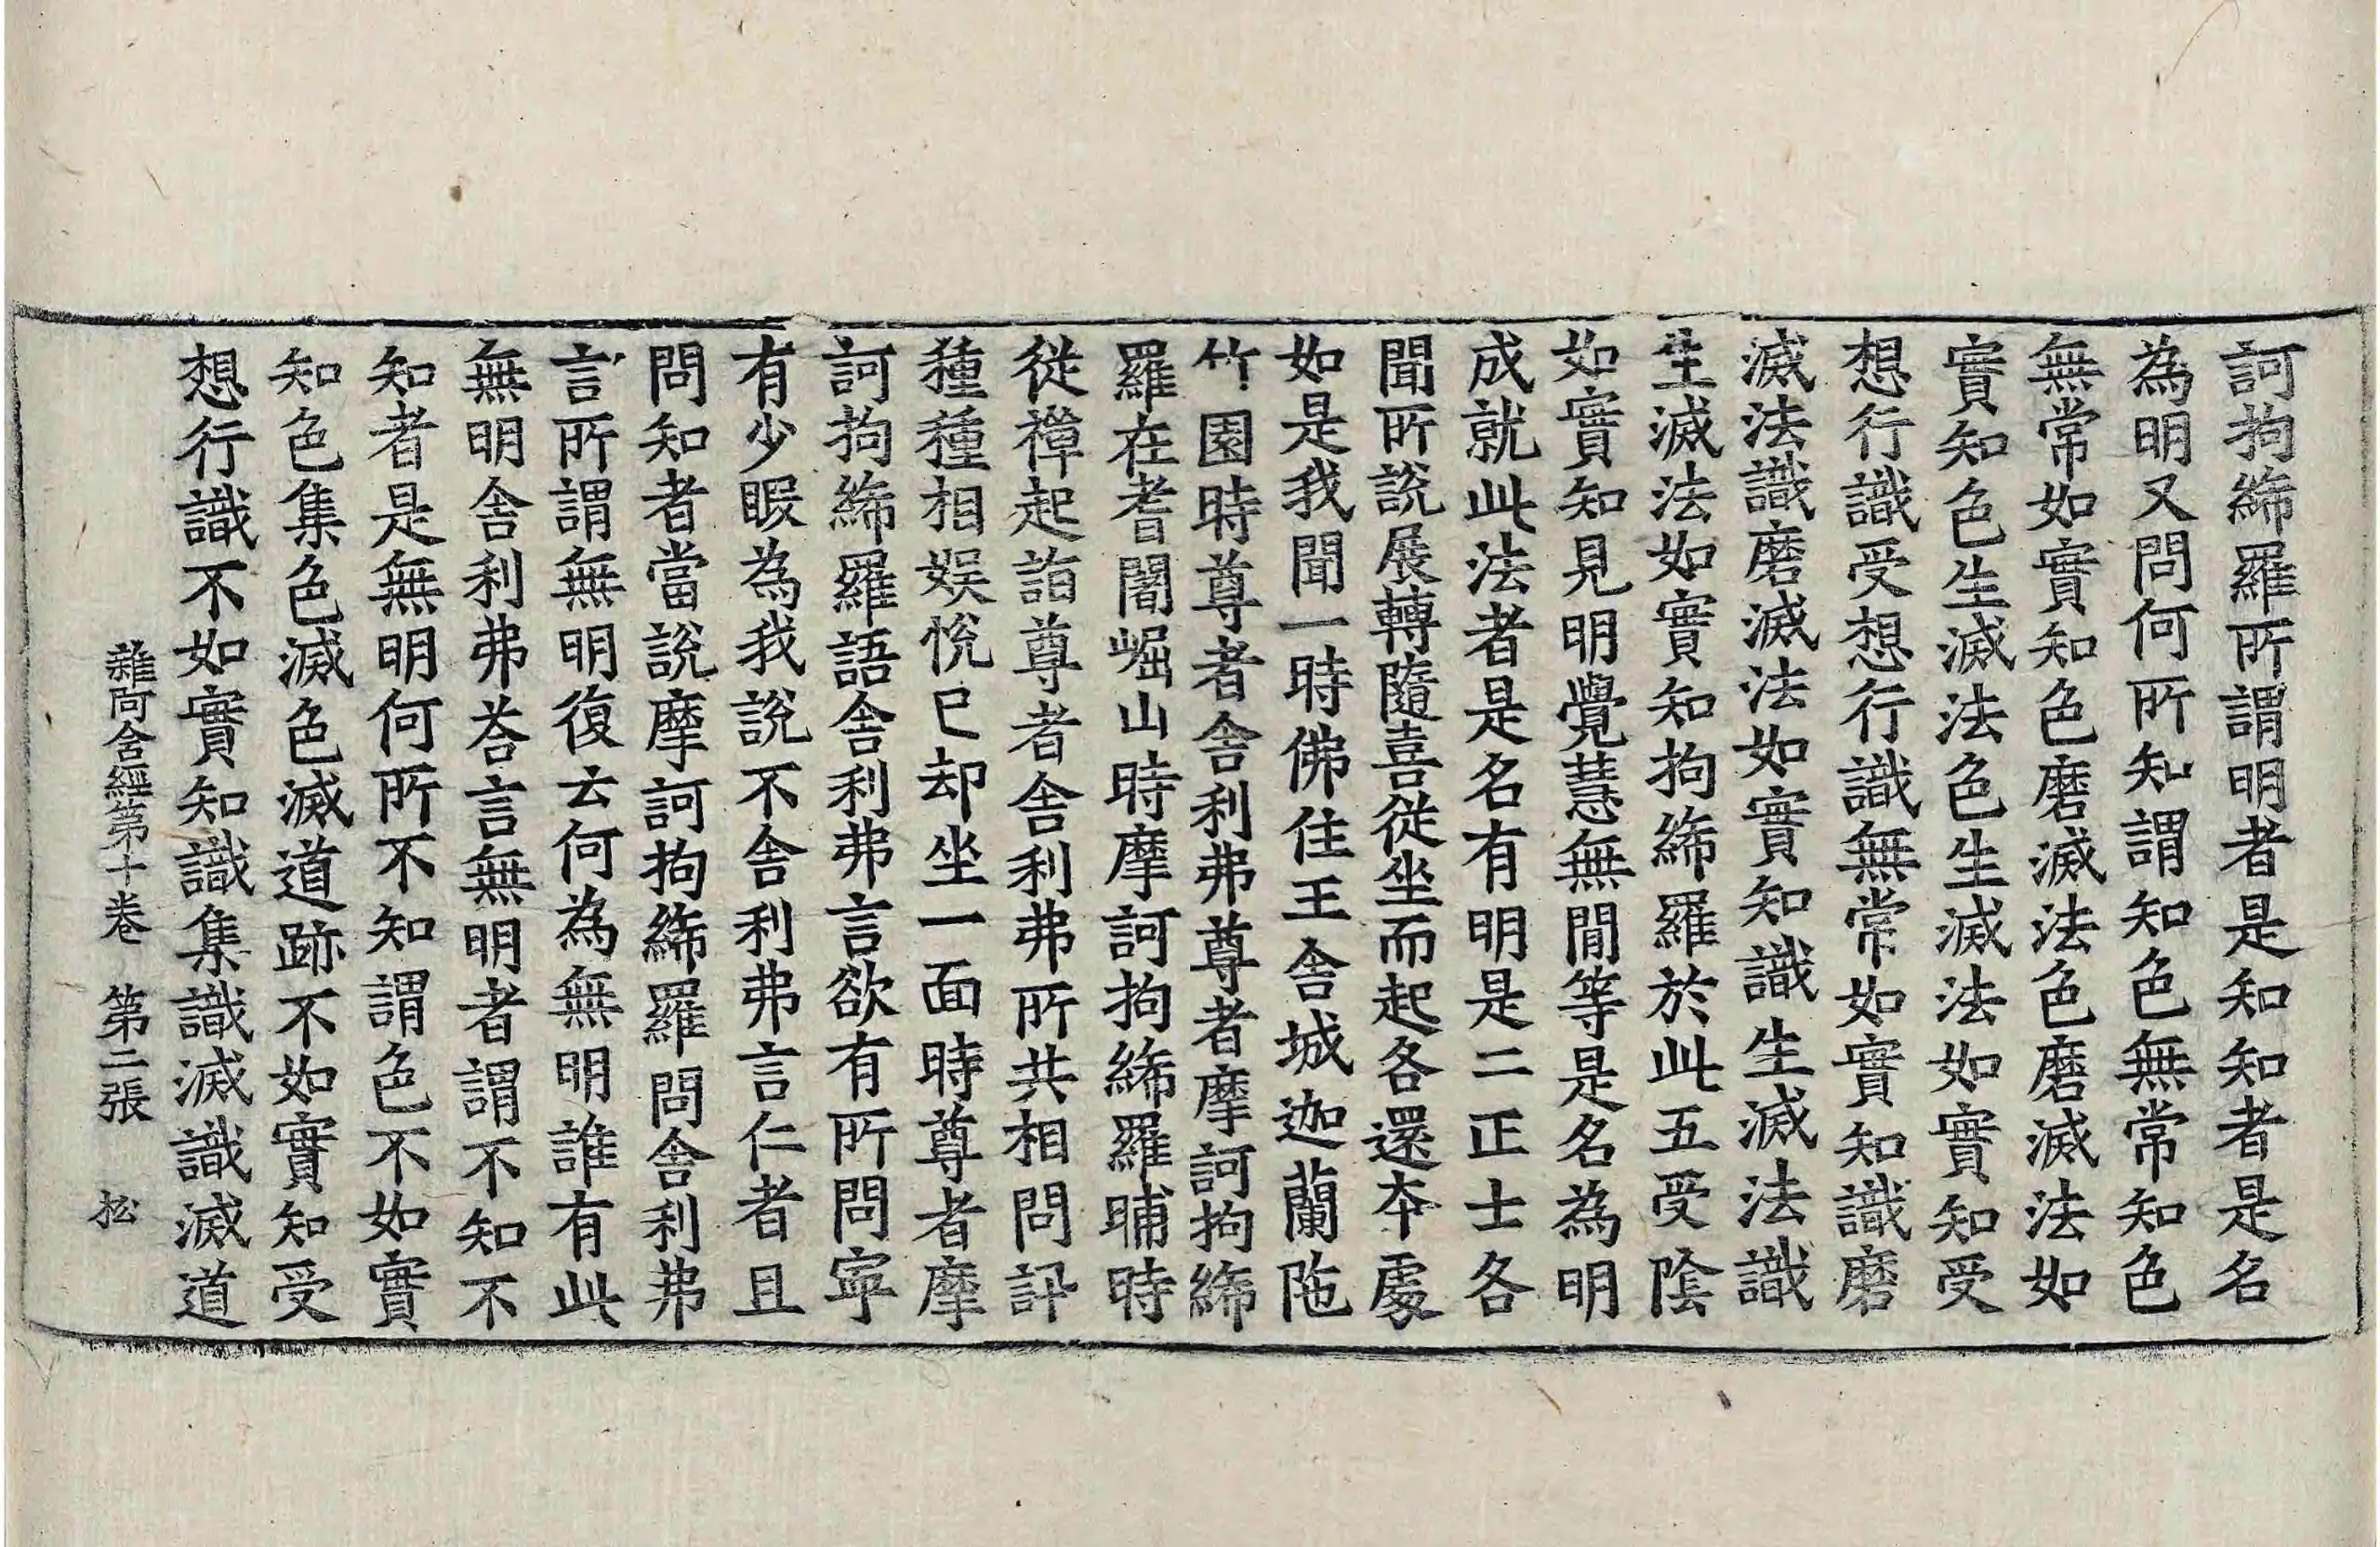 訶拘絺羅所謂明者是知知者是名
為明又問何所知謂知色無常知色
無常如實知色磨滅法色磨滅法如
實知色生滅法色生滅法如實知受
想行識受想行識無常如實知識磨
滅法識磨滅法如實知識生滅法識
生滅法如實知拘絺羅於此五受陰
如實知見明覺慧無閒等是名為明
成就此法者是名有明是二正士各
聞所說展轉隨喜從坐而起各還本處
如是我聞一時佛住王舍城迦蘭陁
竹園時尊者舍利弗尊者摩訶拘絺
羅在耆闍崛山時摩訶拘絺羅晡時
從禪起詣尊者舍利弗所共相問訊
種種相娱悅已却坐一面時尊者摩
訶拘絺羅語舍利弗言欲有所問寧
有少暇為我說不舍利弗言仁者且
問知者當說摩訶拘絺羅問舍利弗
言所謂無明復云何為無明誰有此
無明舍利弗荅言無明者謂不知不
知者是無明何所不知謂色不如實
知色集色滅色滅道跡不如實知受
想行識不如實知識集識滅識滅道
雜阿含經第十卷 第二張 松